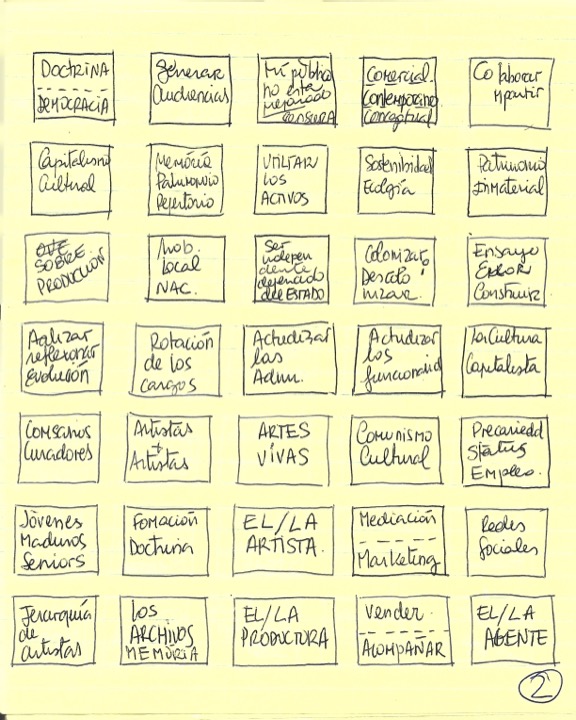 DOCTRINA
DEMOCRACIA
Generar
Audiencias
Mi público
no está
mejorado
CENSURA
Comercial.
Contemporáneo
Conceptual
Colaborar
mpartir
Capitalismo
Cultural
Memoria
Patrimonio
Repertorio
UTILITAR
LOS
ACTIVOS
Sostenibilidad
Ecología
Patrimonio
Inmaterial
SOBRE
PRODUCCIÓN
Mob.
local
NAC.
Ser
indepen
diente
dependiendo
del ESTADO
Colonizar
Descolo
nizar.
Ensayo
Error
Construir
Agilizar
reflexionar
Evolución
Rotación
de los
cargos
Actualizar
las
Adm.
Actualizar
los
funcionarid
La Cultura
Capitalista
Comisarios
Curadores
Artistas
+
Artistas
ARTES
VIVAS
Comunismo
Cultural
Precariedad
Status
Empleo.
Jóvenes
Maduros
Seniors
Formación
Doctrina
EL/LA
ARTISTA.
Mediación
Marketing
Redes
Sociales
Jerarquía
de
artistas
LOS
ARCHIVOS
MEMORIA
EL/LA
PRODUCTORA
Vender.
ACOMPAÑAR
EL/LA
AGENTE
2